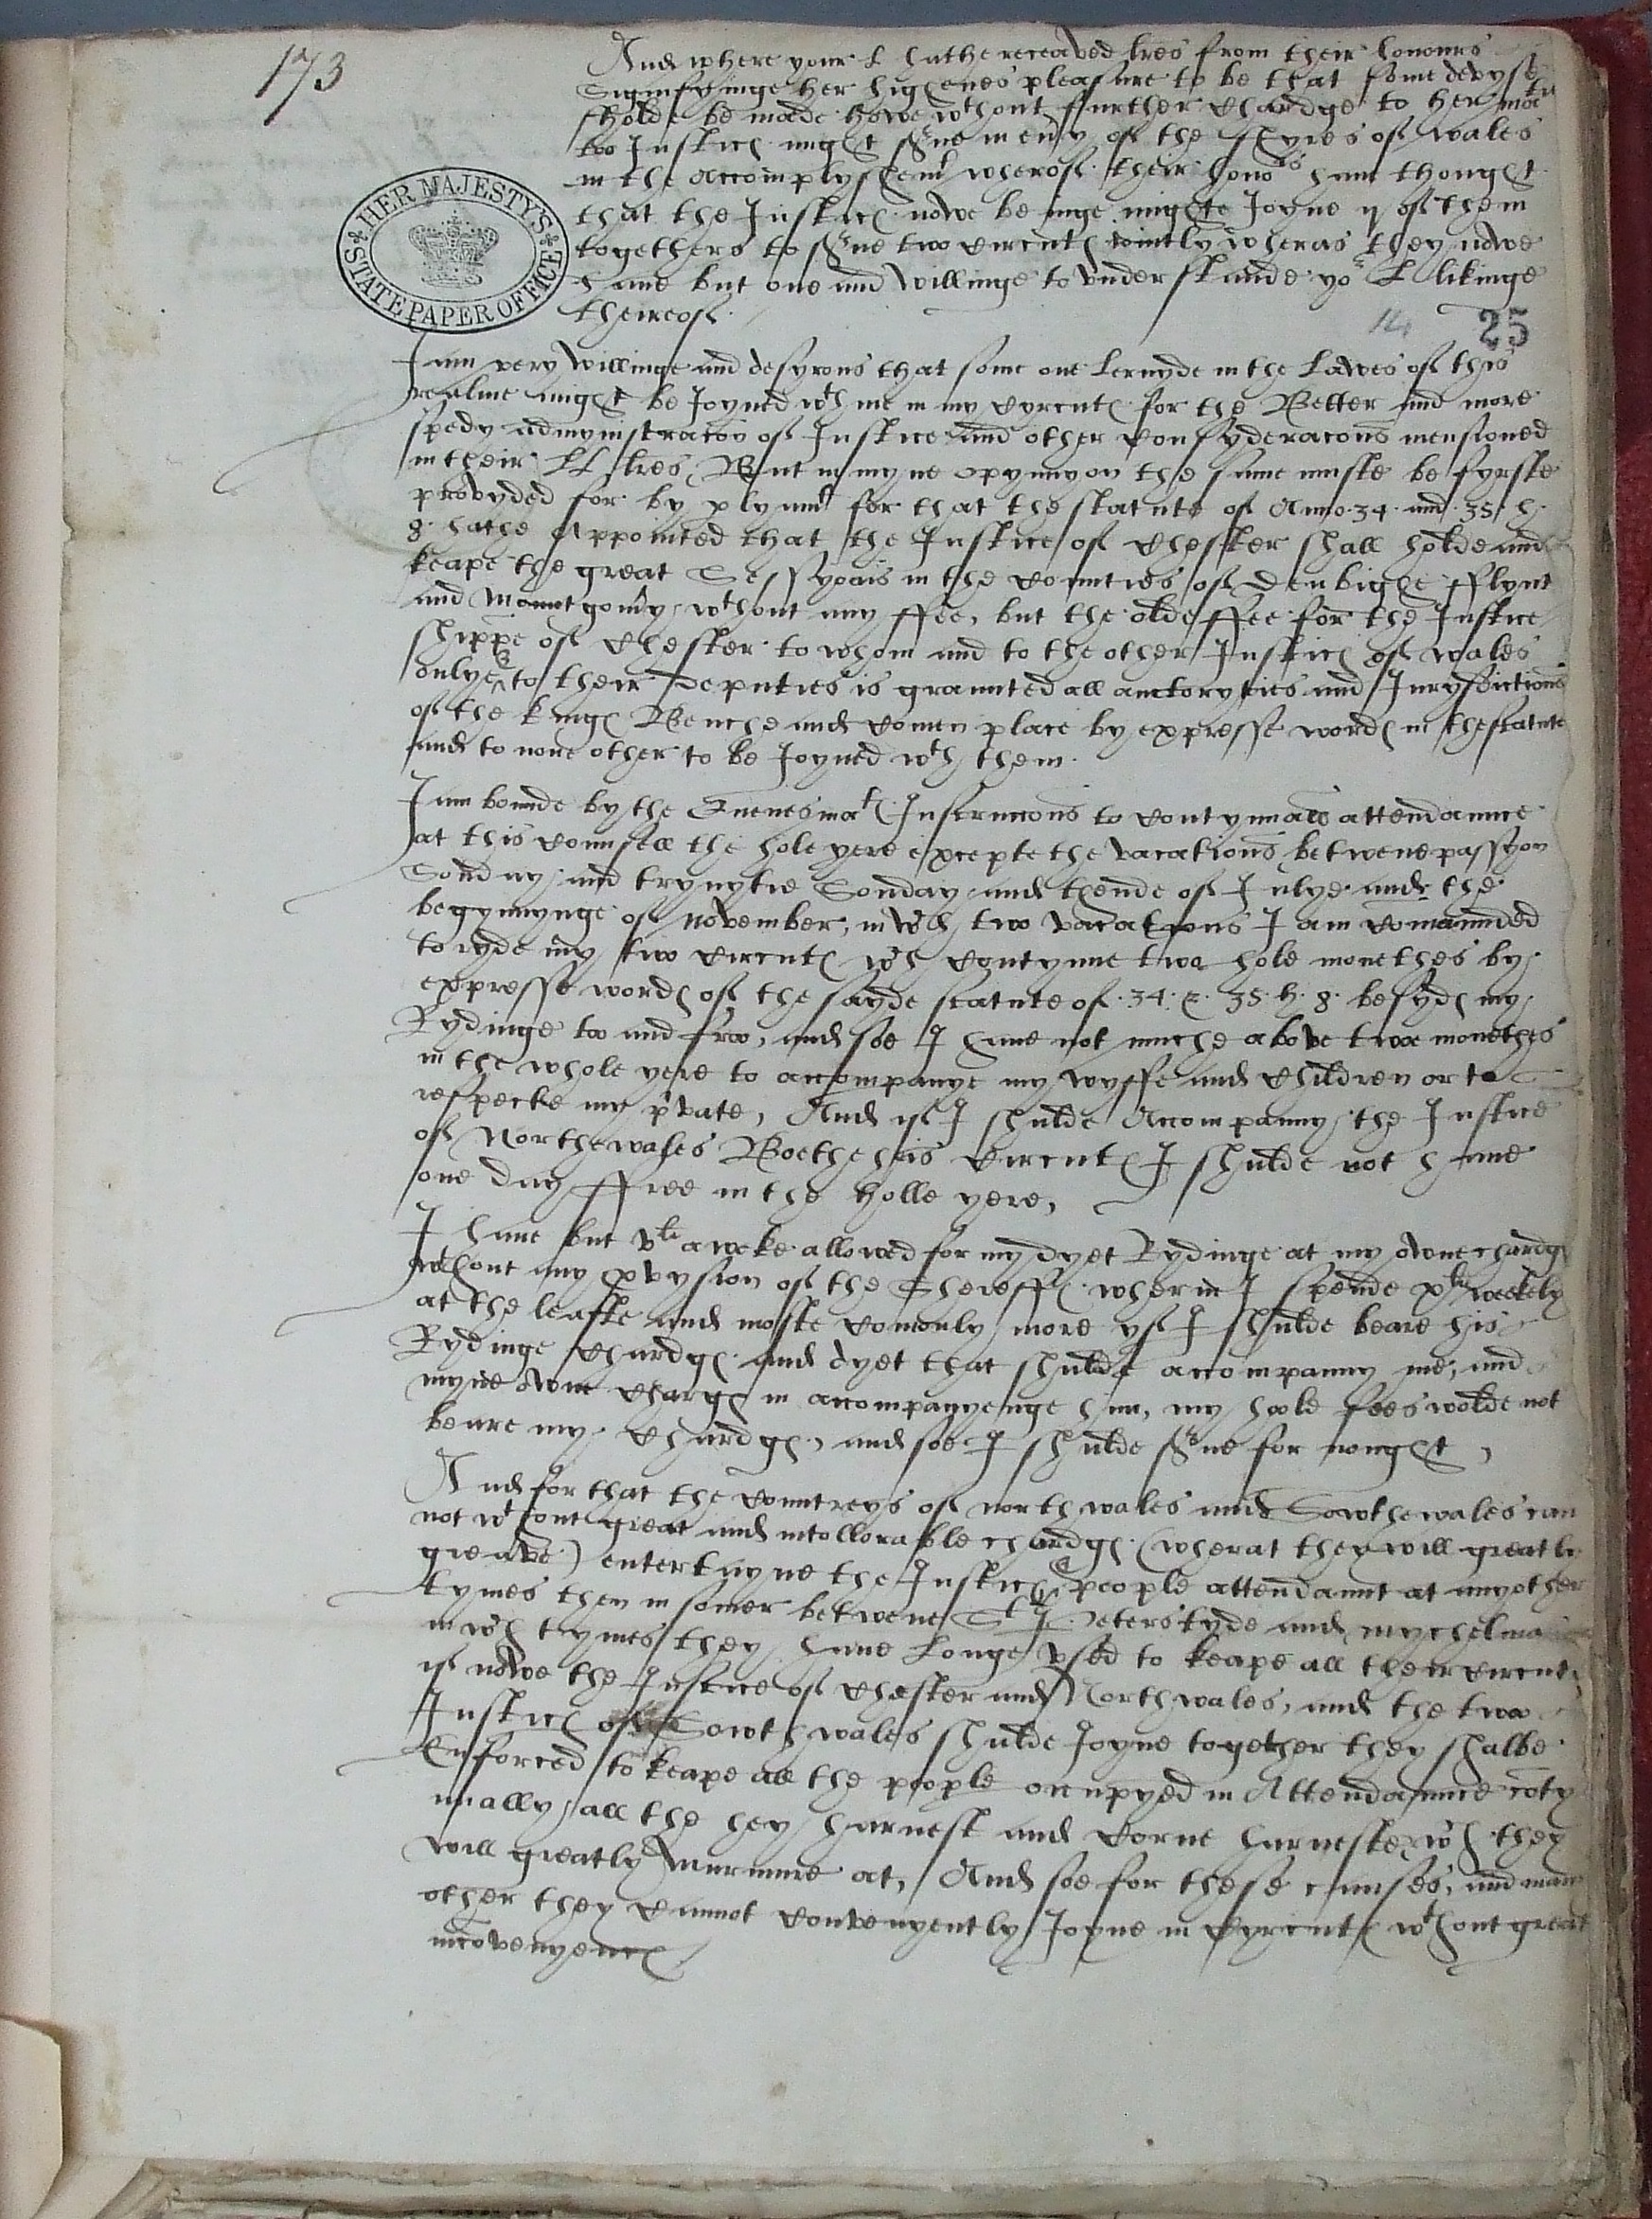 173
And where your L hathe receaved lres from their honours
Signifyinge her highenes pleasure to be that some devyse
sholde be made howe wthout further chardge to her matie
two Justices might sve in eny of the Shyres of wales
in the accomplyshemt wherof their honors have thought
that the Justices nowe beinge mighte Joyne ij of them
togethers to sve two circuites Jointly wheras they nowe
have but one and willinge to understande yor L likinge
theireof.
HER MAJESTY'S STATE PAPER OFFICE
14 25
I am very willinge and desyrous that some one lernyde in the Lawes of this
realme might be Joyned wth me in my cyrcuites for the Better and more
spedy admynistracon of Justice and other consyderacons mensioned
in their LL lres, But in myne opynnyon the same muste be fyrste
provyded for by plyamt for that the statute of Anno .34. and .35. h.
8. hathe Appointed that the Justice of Chester shall holde and
keape the great Sessyons in the counties of denbighe fflynt
and Mountgomy, wthout any ffee, but the olde ffee for the Justice
shippe of Chester to whom and to the other Justices of wales
onlye & to their Deputies is graunted all auctoryties and Jurysdictions
of the kinges Benche and comen place by expresse wordes in the statute
and to none other to be Joyned wth them.
I am bounde by the Quenes mates Instruccons to contynuall attendaunce
at this counsell the hole yere excepte the vacations betwene passyon
Sonday and trynytie Sonday and thende of Julye and the
begynnynge of November, in wch two vacations I am comaunded
to ryde my two circuites wch contynue two hole monethes by
expresse wordes of the sayde statute of .34. & .35. h. 8. besydes my
Rydinge too and froo, and soe I have not muche above two monethes
in the whole yere to accompanye my wyffe and children or to
respecte my pvate, And if I shulde Accompanny the Justice
of Northewales Boethe his circuites I shulde not have
one day ffree in the holle yere,
I have but vli a weke allowed for my dyet Rydinge at my owne chardges
wthout any pvysion of the Shereffes wherin I spende xli weekely
at the leaste and moste comonly more yf I shulde beare his
Rydinge chardges and dyet that shulde accompanny me, and
myne owne charges in accompanyenge him, my hoole fees wolde not
beare my chardges, and soe I shulde sve for nought,
And for that the countreys of north wales and Sowthe wales can
not wthout great and intollorable chardges (wherat they will greatly
greave) entertayne the Justices & people attendaunt at any other
tymes then in somer betwene St Peters tyde and mychelmas
in wch tymes they have Longe used to keape all their circuites
if nowe the Justice of Chester and Northwales, and the two
Justices of Sowthwales shulde Joyne together they shalbe
Enforced to keape all the people occupyed in Attendaunce conty
nually all the hey harvest and corne harveste, wch they
will greatly murmure at, And soe for these causes, and many
other they cannot convenyently Joyne in cyrcuites wthout great
incovenyences